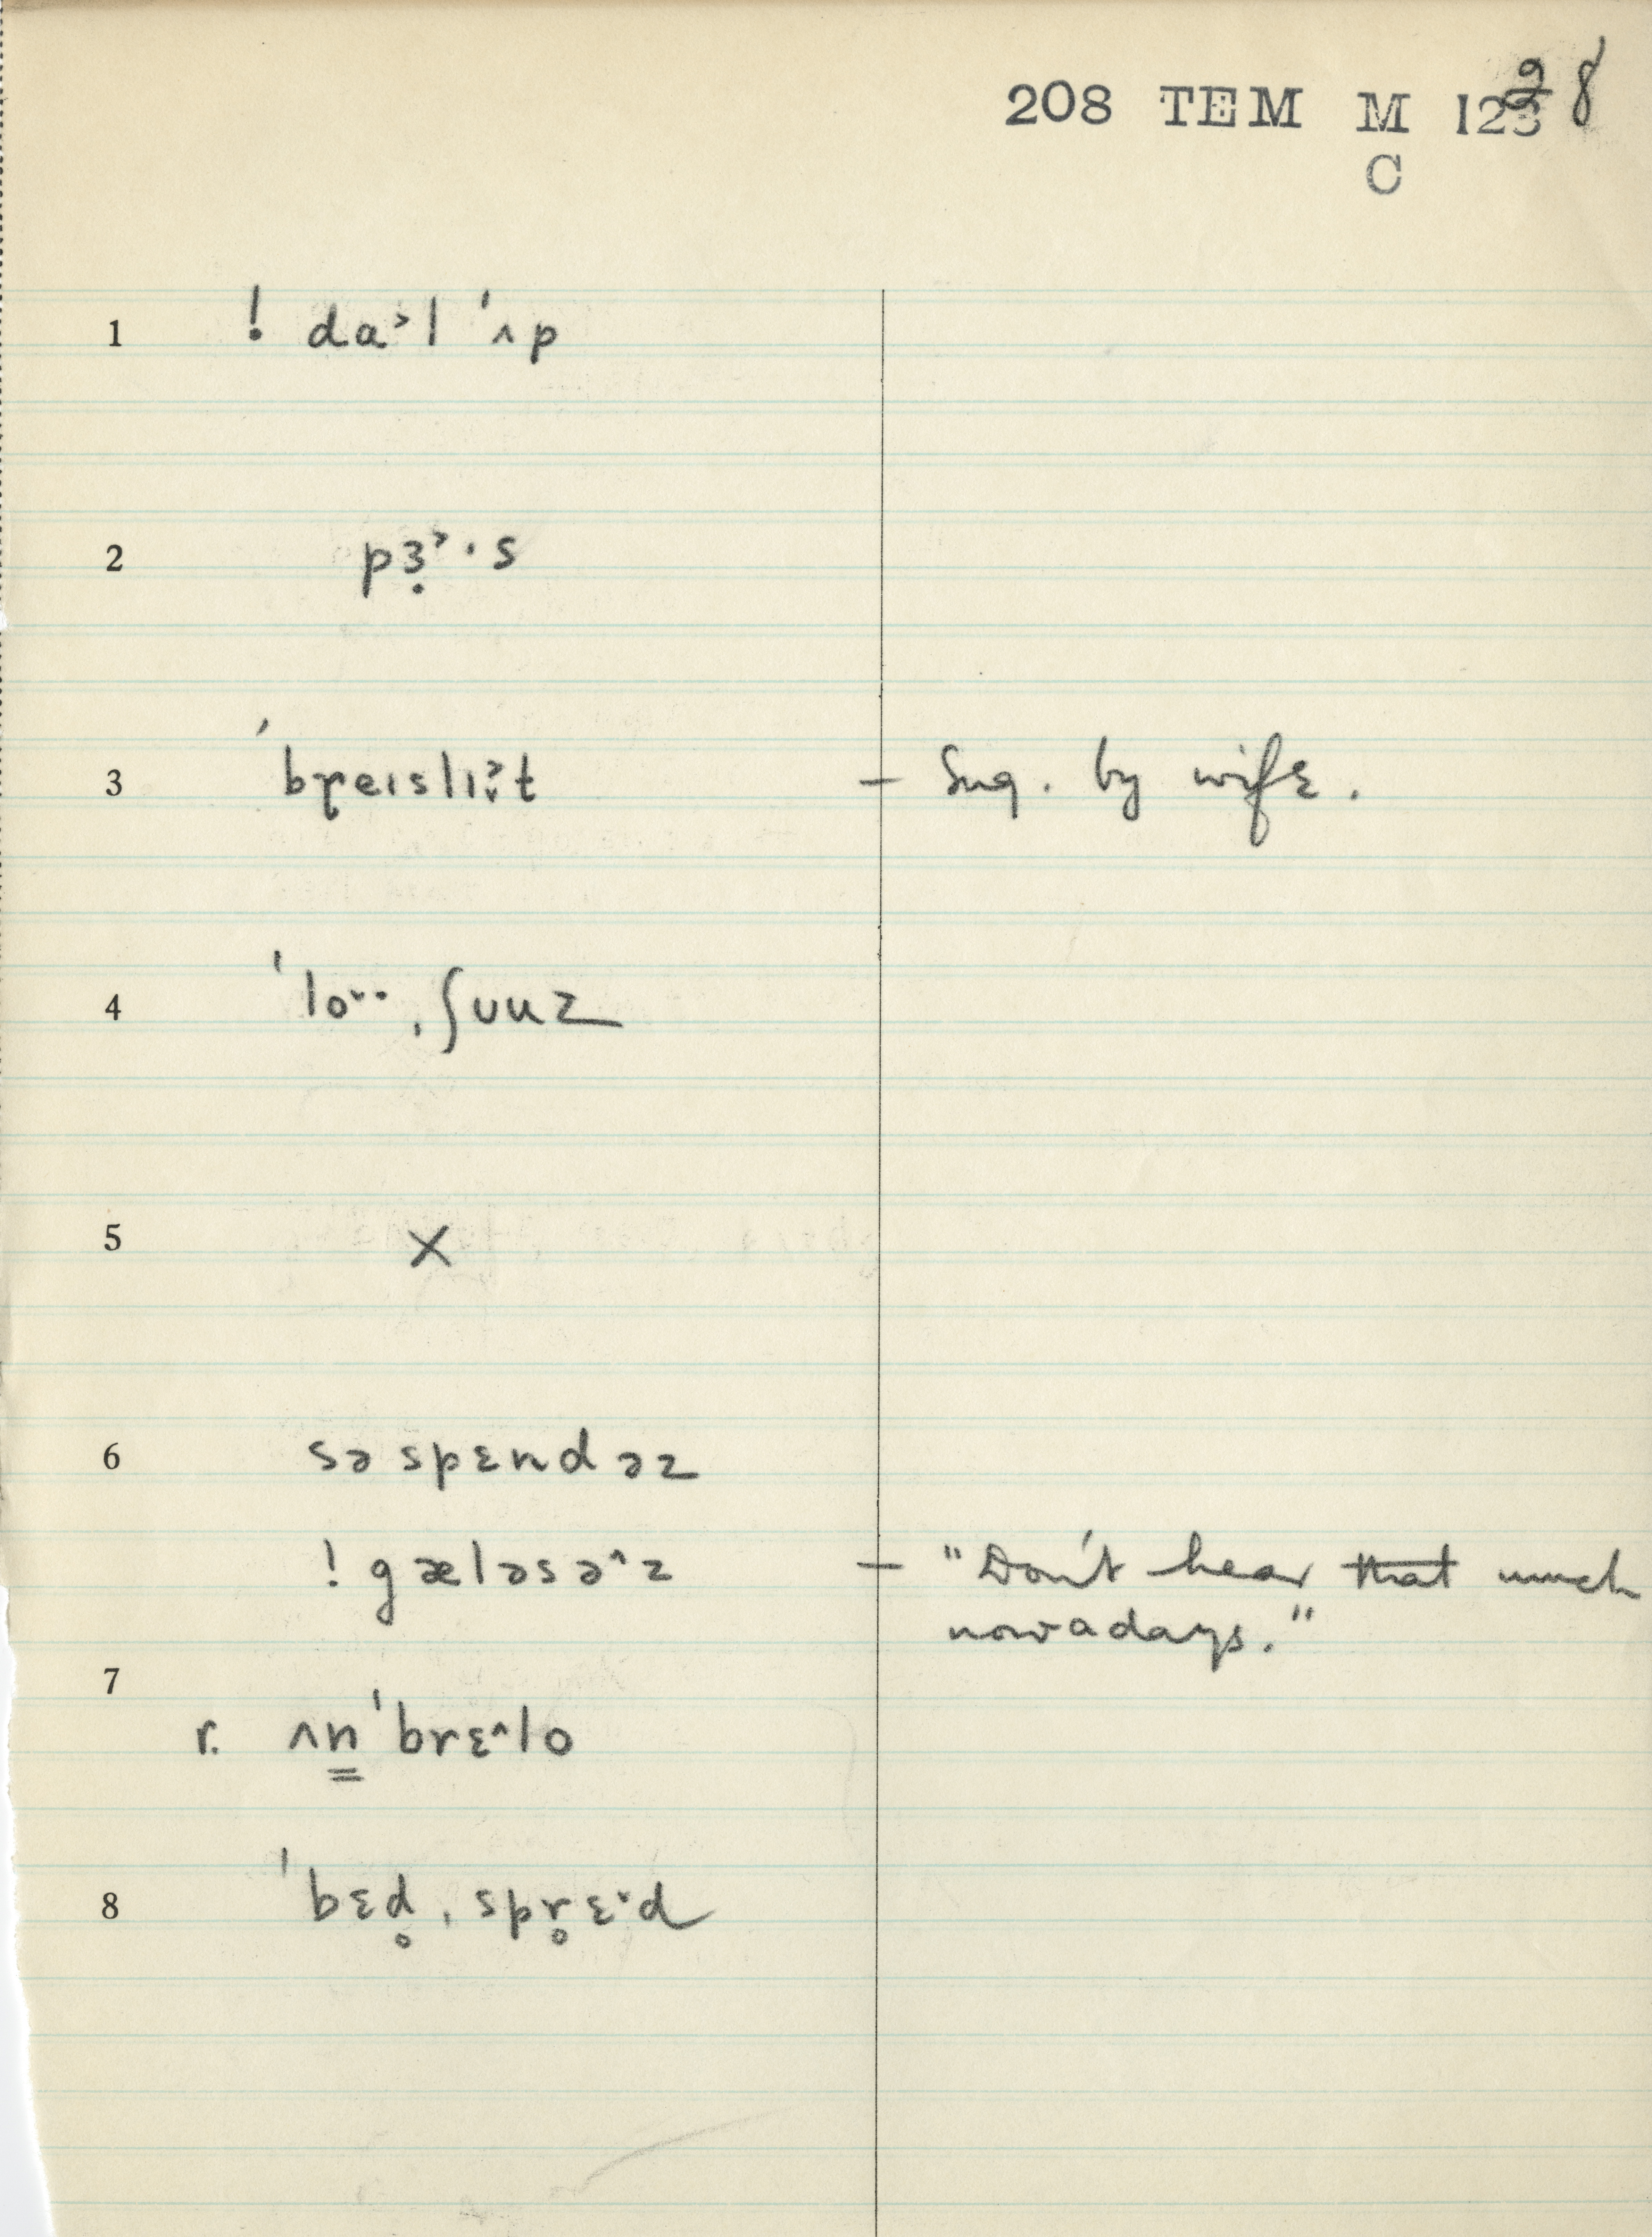 208 TEM M 123 28
C
1 ! da˃l ˈʌp
2 pɜ̣˃·s
3 ˈbreɪslɪ̬˃t – Sug. by wife.
4 ˈlo˅· ˌʃuuz
5 X
6 səspɛndəz
! gæləsə^z – "Don't hear ~~that~~ much
nowadays."
7
r. ʌn̳ˈbrɛ^lo
8 ˈbɛd̥ ˌspr̥ɛ·d